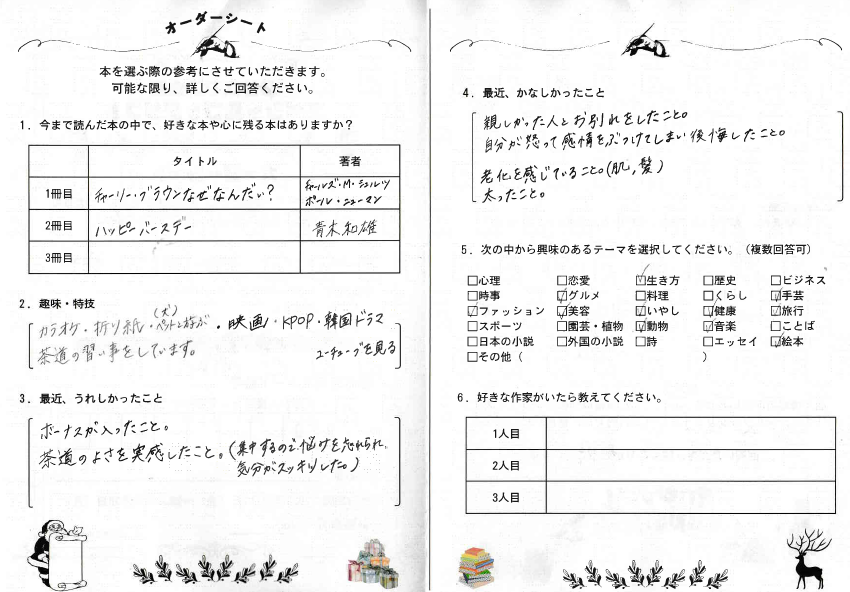 オーダーシート
本を選ぶ際の参考にさせていただきます。
可能な限り、詳しくご回答ください。
1．今まで読んだ本の中で、好きな本や心に残る本はありますか？
タイトル 著者
1冊目 チャーリー・ブラウンなぜなんだい？ チャールズ・M・シュルツ
ポール・ニューマン
2冊目 ハッピーバースデー 青木和雄
3冊目
2．趣味・特技
(犬)
カラオケ・折り紙・ペットと遊ぶ・映画・KPOP・韓国ドラマ
茶道の習い事をしています。 ユーチューブを見る
3．最近、うれしかったこと
ボーナスが入ったこと。
茶道のよさを実感したこと。(集中するので悩みを忘れられ、
気分がスッキリした。)
4．最近、かなしかったこと
親しかった人とお別れをしたこと。
自分が怒って感情をぶつけてしまい後悔したこと。
老化を感じていること。(肌,髪)
太ったこと。
5．次の中から興味のあるテーマを選択してください。（複数回答可）
□心理 □恋愛 ☑生き方 □歴史 □ビジネス
□時事 ☑グルメ □料理 □くらし ☑手芸
☑ファッション ☑美容 ☑いやし ☑健康 ☑旅行
□スポーツ □園芸・植物 ☑動物 ☑音楽 □ことば
□日本の小説 □外国の小説 □詩 □エッセイ ☑絵本
□その他（ ）
6．好きな作家がいたら教えてください。
1人目
2人目
3人目